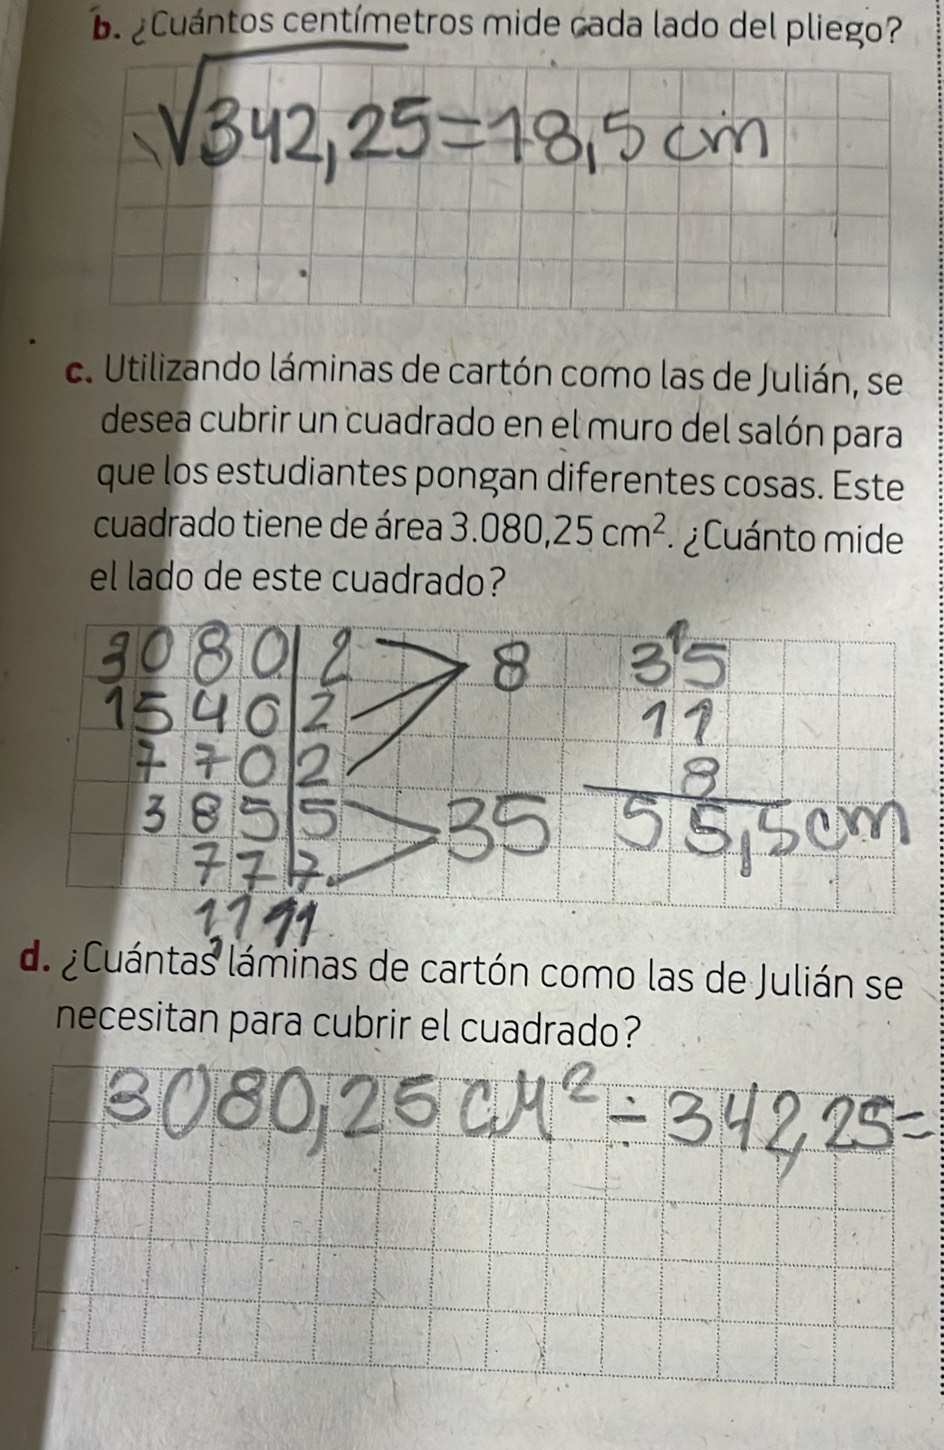 b. ¿Cuántos centímetros mide cada lado del pliego?
√342,25=18,5 cm
c. Utilizando láminas de cartón como las de Julián, se
desea cubrir un cuadrado en el muro del salón para
que los estudiantes pongan diferentes cosas. Este
cuadrado tiene de área 3.080,25 cm². ¿Cuánto mide
el lado de este cuadrado?
3080|2 8 3¹5
1540|2 11
770|2 8
385|5 35 55,5cm
77|7
11 11
d. ¿Cuántas láminas de cartón como las de Julián se
necesitan para cubrir el cuadrado?
3080,25 cm² ÷ 342,25=